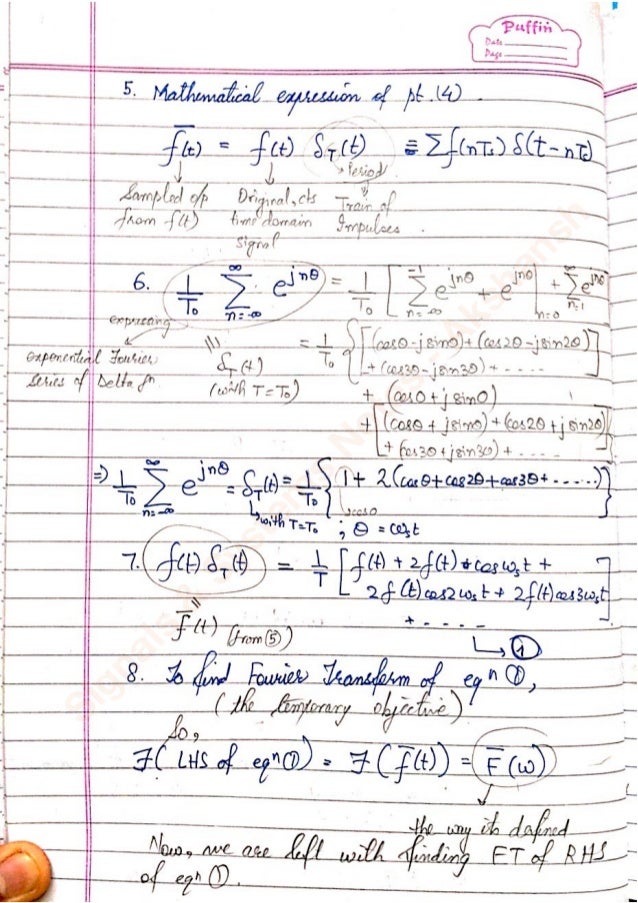 Puffin
Date
Page
5. Mathematical expression of pt.(4).
f̅(t) = f(t) δ_T(t) ≡ Σf(nTs) δ(t-nTs)
Period
Sampled o/p Original, cts Train of
from f(t) time domain Impulses.
signal
6. 1/T₀ Σ_{n=-∞}^{∞} e^{jnθ} = 1/T₀ [ Σ_{n=-∞}^{-1} e^{jnθ} + e^{jnθ}|_{n=0} + Σ_{n=1}^{∞} e^{jnθ} ]
expressing
exponential Fourier
series of Delta fn
= δ_T(t)
(with T=T₀)
= 1/T₀ { [(cosθ-jsinθ)+(cos2θ-jsin2θ)
+(cos3θ-jsin3θ)+-....]
+ (cos0+jsin0)
+[(cosθ+jsinθ)+(cos2θ+jsin2θ)
+(cos3θ+jsin3θ)+-....]
⇒ 1/T₀ Σ_{n=-∞}^{∞} e^{jnθ} = δ_T(t) = 1/T₀ { 1+2(cosθ+cos2θ+cos3θ+......) }
with T=T₀ cos0
; θ = ωst
7. f(t) δ_T(t) = 1/T [ f(t) + 2f(t) cosωst +
2f(t)cos2ωst + 2f(t)cos3ωst
+ ----- ]
= f̅(t) (from ⑤) → ①
8. To find Fourier Transform of eqn ①,
(the temporary objective)
So,
F( LHS of eqn ①) = F( f̅(t)) = F̅(ω)
the way its defined
Now, we are left with finding FT of RHS
of eqn ①.